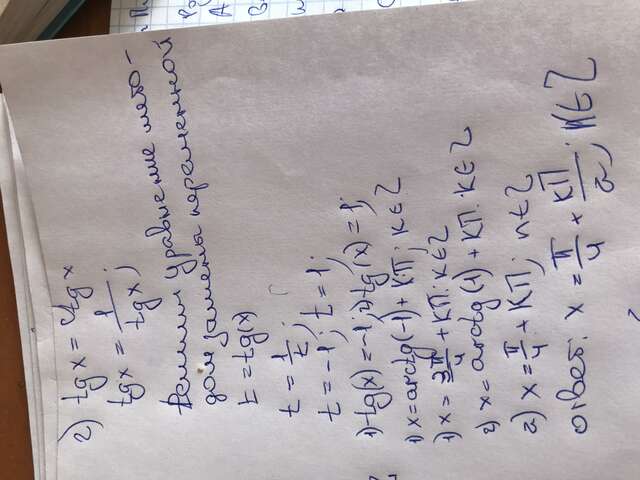 2) tg x = ctg x
tg x = 1/tg x;
Решим уравнение мето-
дом замены переменной
t = tg(x)
t = 1/t;
t = -1; t = 1;
1) tg(x) = -1; 2) tg(x) = 1;
1) x = arctg(-1) + Kπ; K ∈ Z
1) x = 3π/4 + Kπ; K ∈ Z
2) x = arctg(1) + Kπ; K ∈ Z
2) x = π/4 + Kπ; n ∈ Z
ответ: x = π/4 + Kπ/2; K ∈ Z